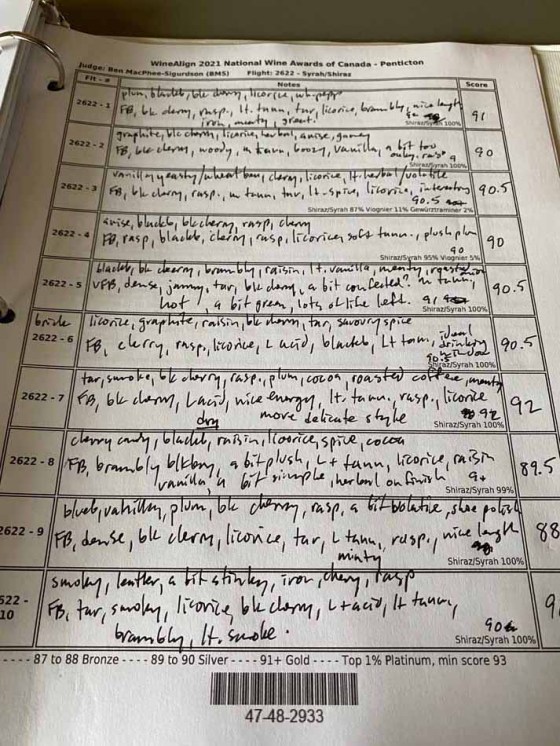 WineAlign 2021 National Wine Awards of Canada - Penticton
Judge: Ben MacPhee-Sigurdson (BMS) Flight: 2622 - Syrah/Shiraz
Flt - # Notes Score
plum, blackb, blk cherry, licorice, wh. pepp
2622 - 1 FB, bk cherry, rasp, lt. tann, tar, licorice, brambly, nice length 91
iron, meaty, great!
Shiraz/Syrah 100%
graphite, blk cherry, licorice, herbal, anise, gamey
2622 - 2 FB, bk cherry, woody, m tann, boozy, vanilla, a bit too 90
oaky. rasp
Shiraz/Syrah 100%
vanilla, yeasty/wheat, cherry, licorice, lt. herbal/volatile
2622 - 3 FB, bk cherry, rasp, m tann, tar, lt. spice, licorice, interesting 90.5
90.5
Shiraz/Syrah 87% Viognier 11% Gewürztraminer 2%
anise, blackb, bk cherry, rasp, cherry
2622 - 4 FB, rasp, blackb, cherry, rasp, licorice, soft tann., plush plum 90
90
Shiraz/Syrah 95% Viognier 5%
blackb, bk cherry, brambly, raisin, lt. vanilla, meaty
2622 - 5 VFB, dense, jammy, tar, bk cherry, a bit confected? m tann, 90.5
hot, a bit green, lots of life left. 91
Shiraz/Syrah 100%
licorice, graphite, raisin, bk cherry, tar, savoury spice
2622 - 6 FB, cherry, rasp, licorice, L acid, blackb, Lt tann, ideal drinking window 90.5
90.5
Shiraz/Syrah 100%
tar, smoke, bk cherry, rasp, plum, cocoa, roasted coffee, meaty
2622 - 7 FB, bk cherry, L acid, nice energy, lt. tann, rasp, licorice 92
dry more delicate style 92
Shiraz/Syrah 100%
cherry candy, blackb, raisin, licorice, spice, cocoa
2622 - 8 FB, brambly, a bit plush, L+ tann, licorice, raisin 89.5
vanilla, a bit simple, herbal on finish
Shiraz/Syrah 99%
blueb, vanilla, plum, bk cherry, rasp, a bit volatile, shoe polish
2622 - 9 FB, dense, bk cherry, licorice, tar, L tann, rasp, nice length 88
minty
Shiraz/Syrah 100%
smoky, leather, a bit stinky, iron, cherry, rasp
10 FB, tar, smoky, licorice, bk cherry, L+ acid, lt tann,
brambly, lt. smoke. 90
Shiraz/Syrah 100%
---- 87 to 88 Bronze ---- 89 to 90 Silver ---- 91+ Gold ---- Top 1% Platinum, min score 93
47-48-2933